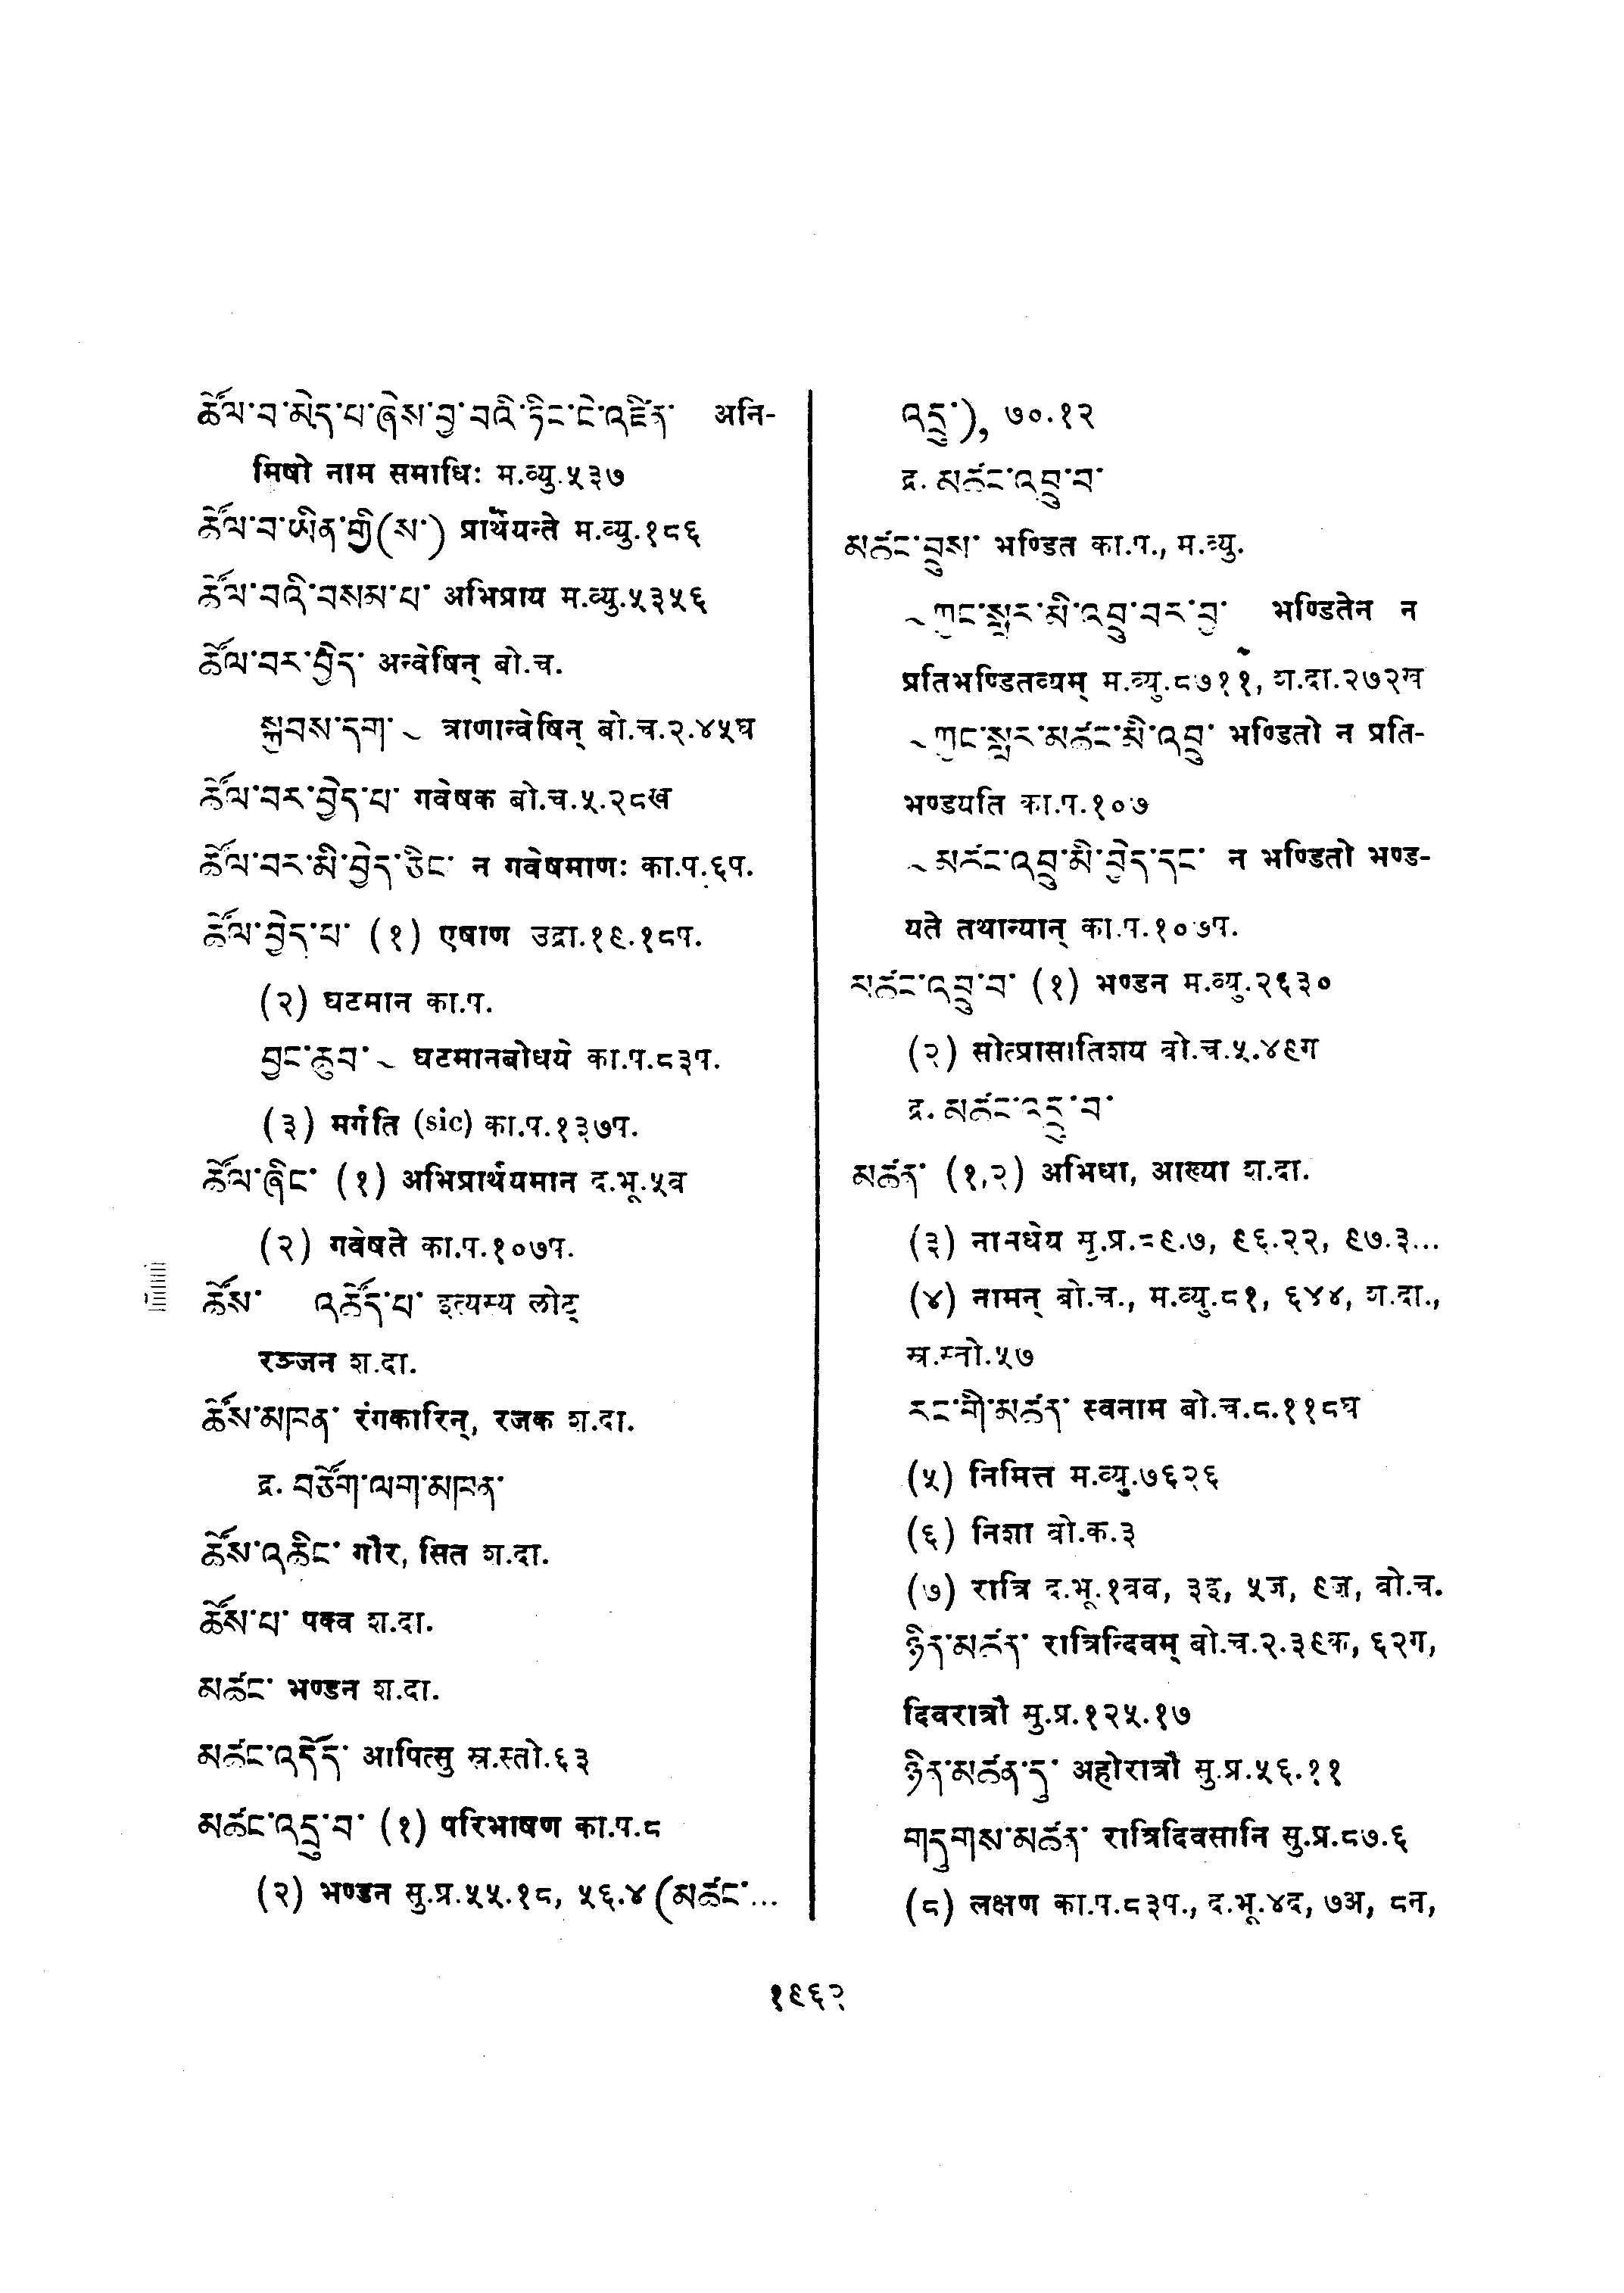 ཚོལ་བ་མེད་པ་ཞེས་བྱ་བའི་ཏིང་ངེ་འཛིན་ अनि-
मिषो नाम समाधिः म.व्यु.५३७
ཚོལ་བ་ཡིན་གྱི(ས་) प्रार्थयन्ते म.व्यु.१८६
ཚོལ་བའི་བསམ་པ་ अभिप्राय म.व्यु.५३५६
ཚོལ་བར་བྱེད་ अन्वेषिन् बो.च.
སྐྱབས་དག་ ~ त्राणान्वेषिन् बो.च.२.४५घ
ཚོལ་བར་བྱེད་པ་ गवेषक बो.च.५.२८ख
ཚོལ་བར་མི་བྱེད་ཅིང་ न गवेषमाणः का.प.६प.
ཚོལ་བྱེད་པ་ (१) एषाण उद्रा.१९.१८प.
(२) घटमान का.प.
བྱང་ཆུབ་ ~ घटमानबोधये का.प.८३प.
(३) मर्गति (sic) का.प.१३७प.
ཚོལ་ཞིང་ (१) अभिप्रार्थयमान द.भू.५व
(२) गवेषते का.प.१०७प.
ཚོས་ འཚོད་པ་ इत्यस्य लोट्
रञ्जन श.दा.
ཚོས་མཁན་ रंगकारिन्, रजक श.दा.
द्र. བཙོག་ལག་མཁན་
ཚོས་འཚིང་ गौर, सित श.दा.
ཚོས་པ་ पक्व श.दा.
མཚང་ भण्डन श.दा.
མཚང་འདོད་ आपित्सु स्र.स्तो.६३
མཚང་འདྲུ་བ་ (१) परिभाषण का.प.८
(२) भण्डन सु.प्र.५५.१८, ५६.४ (མཚང་...
འདྲུ་), ७०.१२
द्र. མཚང་འབྲུ་བ་
མཚང་བྲུས་ भण्डित का.प., म.व्यु.
~ ཀྱང་སླར་མི་འབྲུ་བར་བྱ་ भण्डितेन न
प्रतिभण्डितव्यम् म.व्यु.८७११, श.दा.२७२ख
~ ཀྱང་སླར་མཚང་མི་འབྲུ་ भण्डितो न प्रति-
भण्डयति का.प.१०७
~ མཚང་འབྲུ་མི་བྱེད་དང་ न भण्डितो भण्ड-
यते तथान्यान् का.प.१०७प.
མཚང་འབྲུ་བ་ (१) भण्डन म.व्यु.२६३०
(२) सोत्प्रासातिशय बो.च.५.४९ग
द्र. མཚང་འདྲུ་བ་
མཚན་ (१,२) अभिधा, आख्या श.दा.
(३) नामधेय सु.प्र. ९६.२२, ९७.३...
(४) नामन् बो.च., म.व्यु.८१, ६४४, श.दा.,
स्र.स्तो.५७
རང་གི་མཚན་ स्वनाम बो.च.८.११८घ
(५) निमित्त म.व्यु.७६२६
(६) निशा बो.क.३
(७) रात्रि द.भू.१वव, ३इ, ५ज, ९ज, बो.च.
ཉིན་མཚན་ रात्रिन्दिवम् बो.च.२.३९क, ६२ग,
दिवरात्रौ सु.प्र.१२५.१७
ཉིན་མཚན་དུ་ अहोरात्रौ सु.प्र.५६.११
གདུགས་མཚན་ रात्रिदिवसानि सु.प्र.८७.६
(८) लक्षण का.प.८३प., द.भू.४द, ७अ, ८न,
१९६२